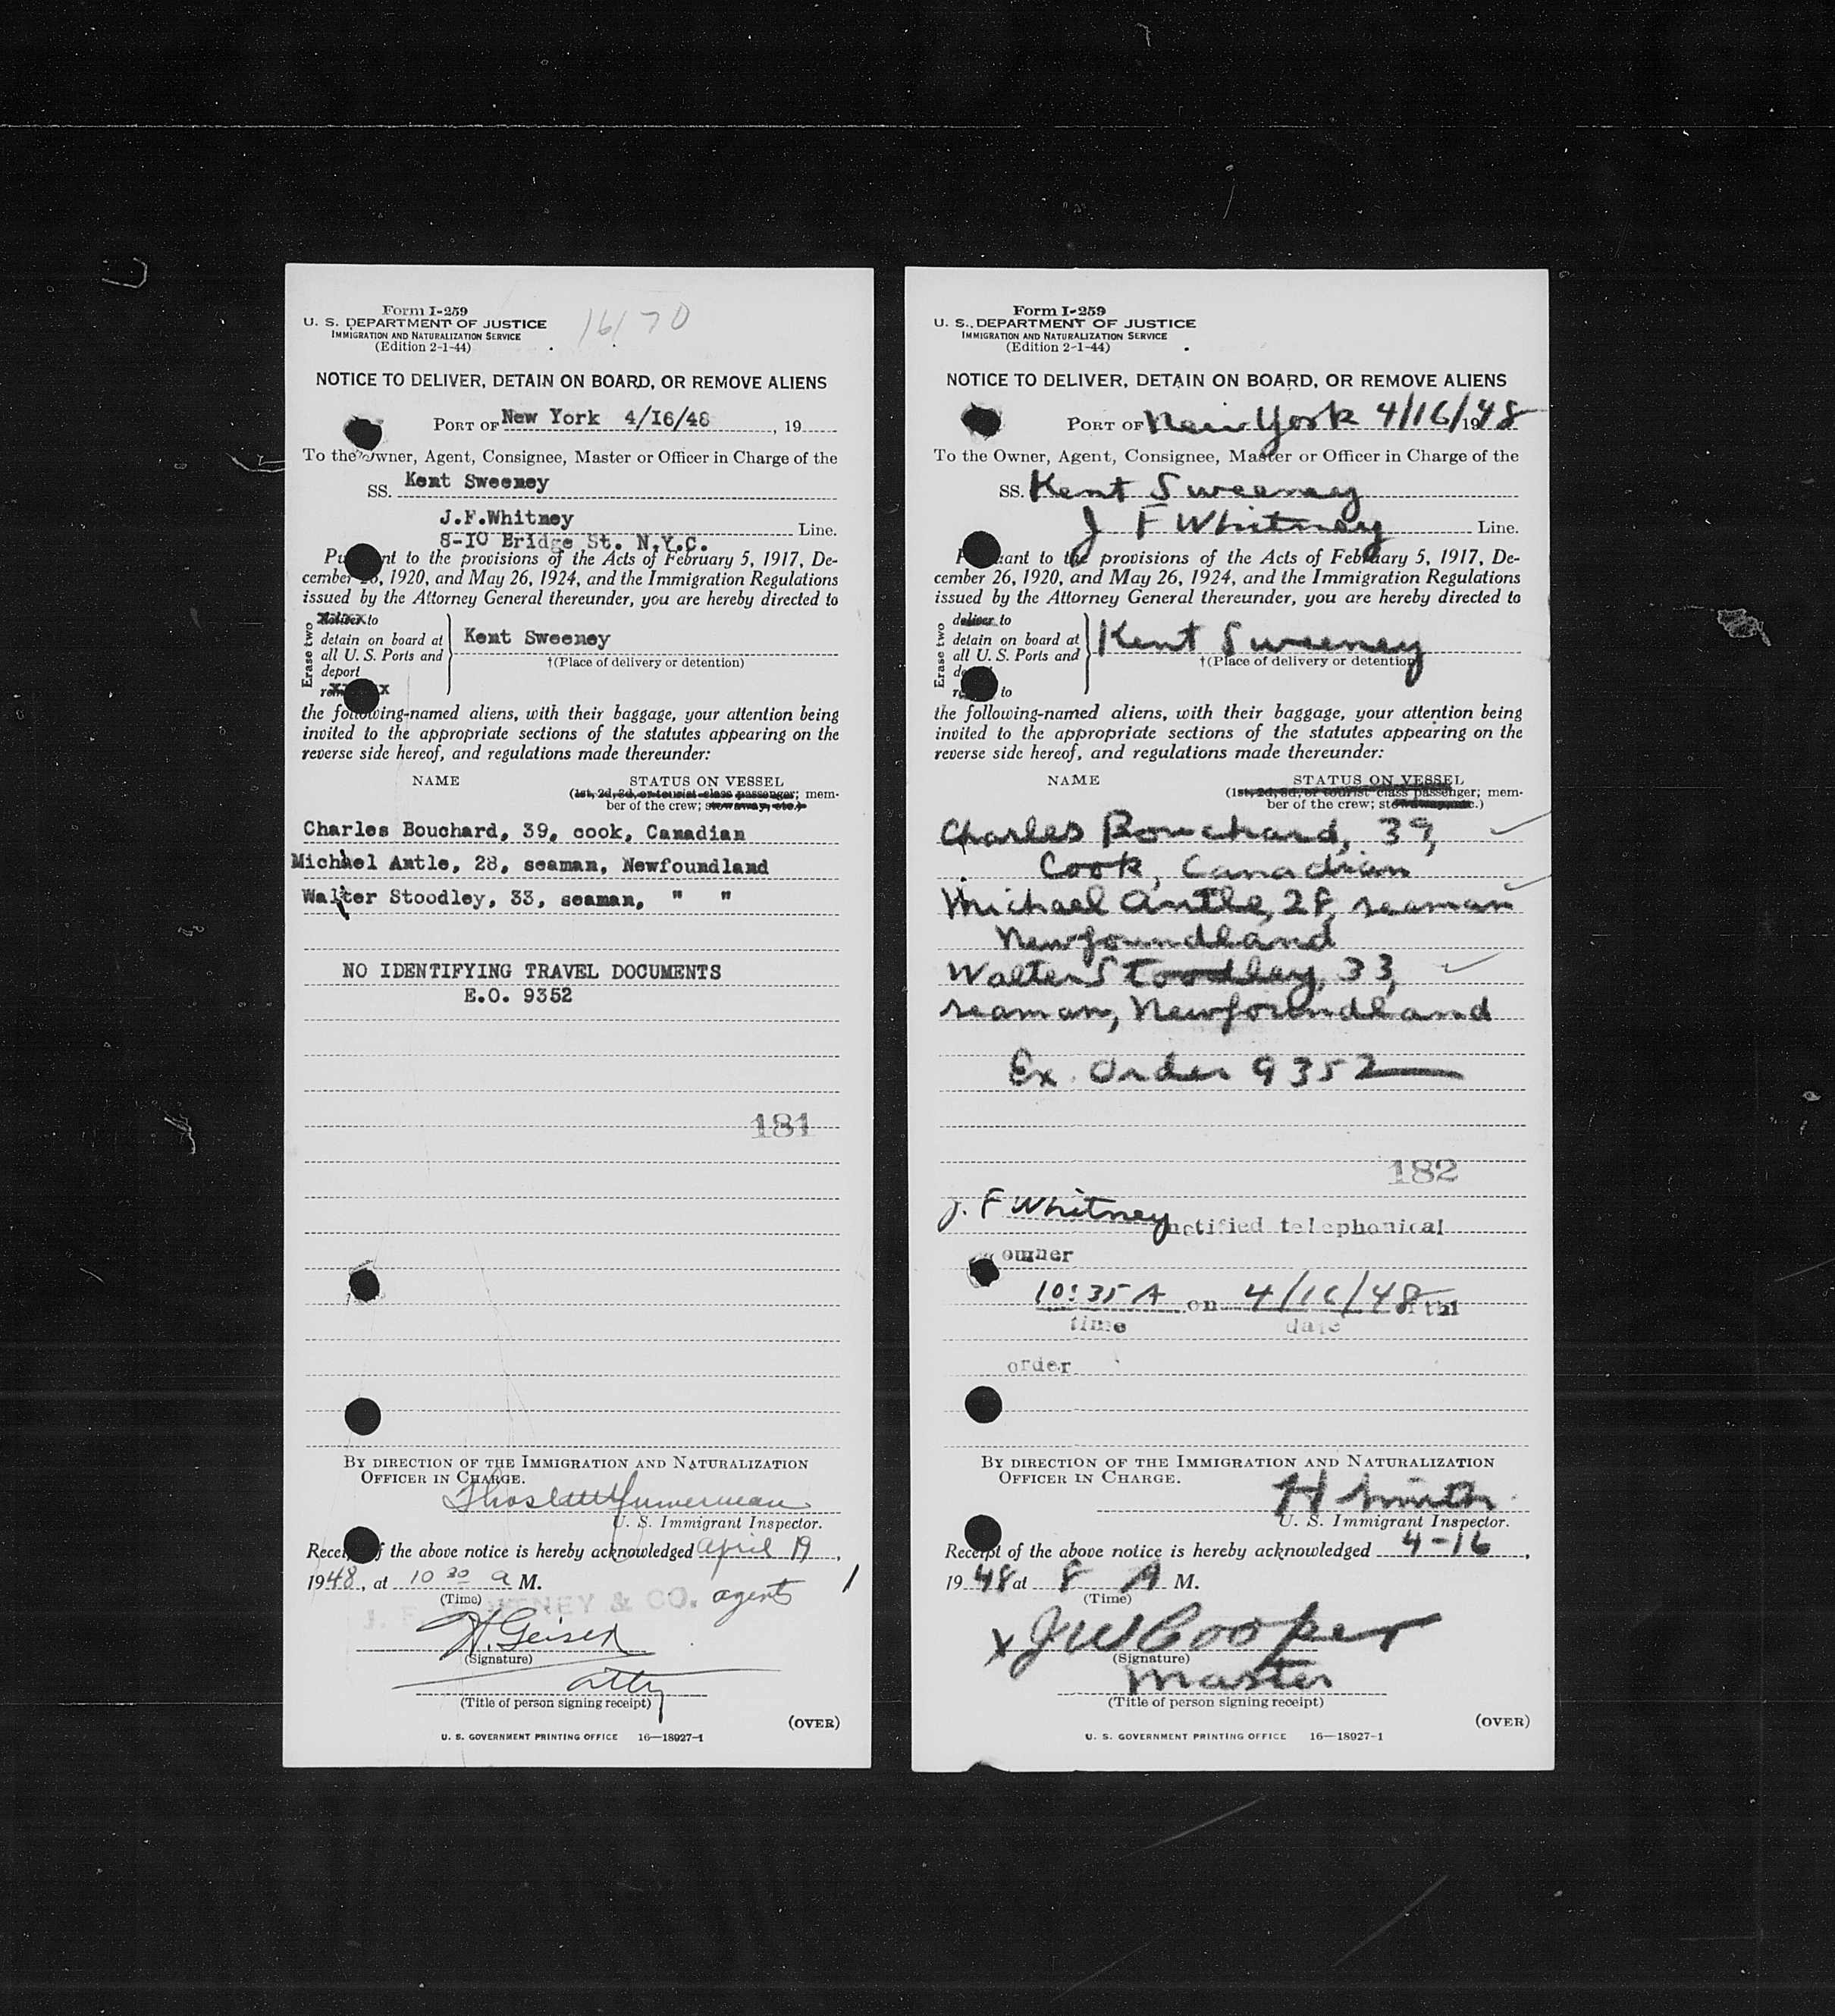 Form I-259
U. S. DEPARTMENT OF JUSTICE
IMMIGRATION AND NATURALIZATION SERVICE
(Edition 2-1-44)
16170
NOTICE TO DELIVER, DETAIN ON BOARD, OR REMOVE ALIENS
PORT OF New York 4/16/48, 19
To the Owner, Agent, Consignee, Master or Officer in Charge of the
SS. Kent Sweeney
J.F.Whitney Line.
8-10 Bridge St. N.Y.C.
Pu nt to the provisions of the Acts of February 5, 1917, De-
cember 26, 1920, and May 26, 1924, and the Immigration Regulations
issued by the Attorney General thereunder, you are hereby directed to
Erase two
deliver to
detain on board at
all U. S. Ports and
deport
Kent Sweeney
†(Place of delivery or detention)
the following-named aliens, with their baggage, your attention being
invited to the appropriate sections of the statutes appearing on the
reverse side hereof, and regulations made thereunder:
NAME STATUS ON VESSEL
(1st, 2d, 3d, or tourist class passenger; mem-
ber of the crew; stowaway, etc.)
Charles Bouchard, 39, cook, Canadian
Michael Antle, 28, seaman, Newfoundland
Walter Stoodley, 33, seaman, " "
NO IDENTIFYING TRAVEL DOCUMENTS
E.O. 9352
181
BY DIRECTION OF THE IMMIGRATION AND NATURALIZATION
OFFICER IN CHARGE.
U. S. Immigrant Inspector.
Receipt of the above notice is hereby acknowledged April 19,
1948, at 10 30 a M.
(Time)
J. F. WHITNEY & CO. agents
H. Geisen
(Signature)
atty
(Title of person signing receipt)
(OVER)
U. S. GOVERNMENT PRINTING OFFICE 16—18927-1
Form I-259
U. S. DEPARTMENT OF JUSTICE
IMMIGRATION AND NATURALIZATION SERVICE
(Edition 2-1-44)
NOTICE TO DELIVER, DETAIN ON BOARD, OR REMOVE ALIENS
PORT OF New York 4/16/1948
To the Owner, Agent, Consignee, Master or Officer in Charge of the
SS. Kent Sweeney
J F Whitney Line.
P uant to the provisions of the Acts of February 5, 1917, De-
cember 26, 1920, and May 26, 1924, and the Immigration Regulations
issued by the Attorney General thereunder, you are hereby directed to
Erase two
deliver to
detain on board at
all U. S. Ports and
to
Kent Sweeney
†(Place of delivery or detention
the following-named aliens, with their baggage, your attention being
invited to the appropriate sections of the statutes appearing on the
reverse side hereof, and regulations made thereunder:
NAME STATUS ON VESSEL
(1st, 2d, 3d, or tourist class passenger; mem-
ber of the crew; stowaway, etc.)
Charles Bouchard, 39,
Cook, Canadian
Michael Antle, 28, seaman
Newfoundland
Walter Stoodley, 33,
seaman, Newfoundland
Ex. Order 9352
182
J. F Whitney notified telephonical
owner
10:35 A on 4/16/48 of thi
time date
order
BY DIRECTION OF THE IMMIGRATION AND NATURALIZATION
OFFICER IN CHARGE.
H Smith
U. S. Immigrant Inspector.
Receipt of the above notice is hereby acknowledged 4-16,
1948 at 8 A M.
(Time)
x J W Cooper
(Signature)
Master
(Title of person signing receipt)
(OVER)
U. S. GOVERNMENT PRINTING OFFICE 16—18927-1